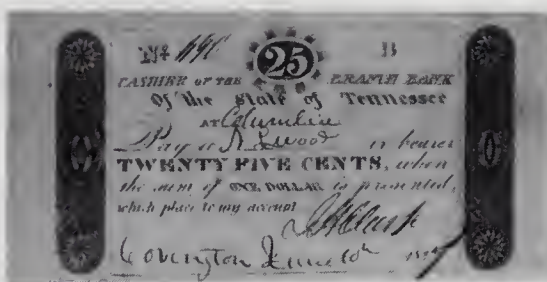 25 B
CASHIER OF THE BRANCH BANK
Of The State of Tennessee
AT Columbia
Pay to Wood or bearer
TWENTY FIVE CENTS, when
the sum of ONE DOLLAR is presented,
which place to my account
Clark
Covington June 10th